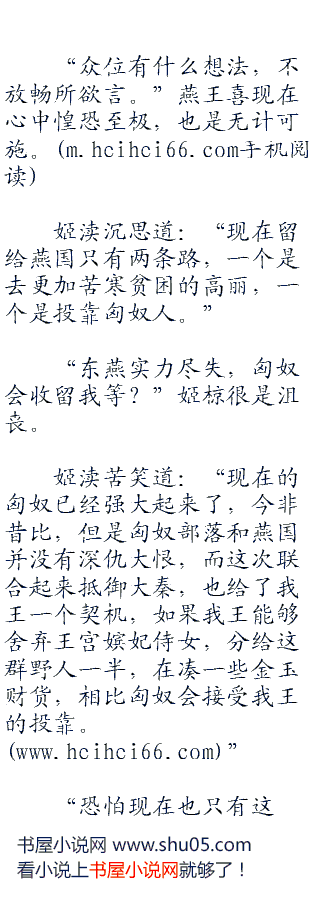 “众位有什么想法，不
放畅所欲言。”燕王喜现在
心中惶恐至极，也是无计可
施。(m.hcihci66.com手机阅
读)
姬渎沉思道：“现在留
给燕国只有两条路，一个是
去更加苦寒贫困的高丽，一
个是投靠匈奴人。”
“东燕实力尽失，匈奴
会收留我等？”姬椋很是沮
丧。
姬渎苦笑道：“现在的
匈奴已经强大起来了，今非
昔比，但是匈奴部落和燕国
并没有深仇大恨，而这次联
合起来抵御大秦，也给了我
王一个契机，如果我王能够
舍弃王宫嫔妃侍女，分给这
群野人一半，在凑一些金玉
财货，相比匈奴会接受我王
的投靠。
(www.hcihci66.com)”
“恐怕现在也只有这
书屋小说网 www.shu05.com
看小说上书屋小说网就够了！